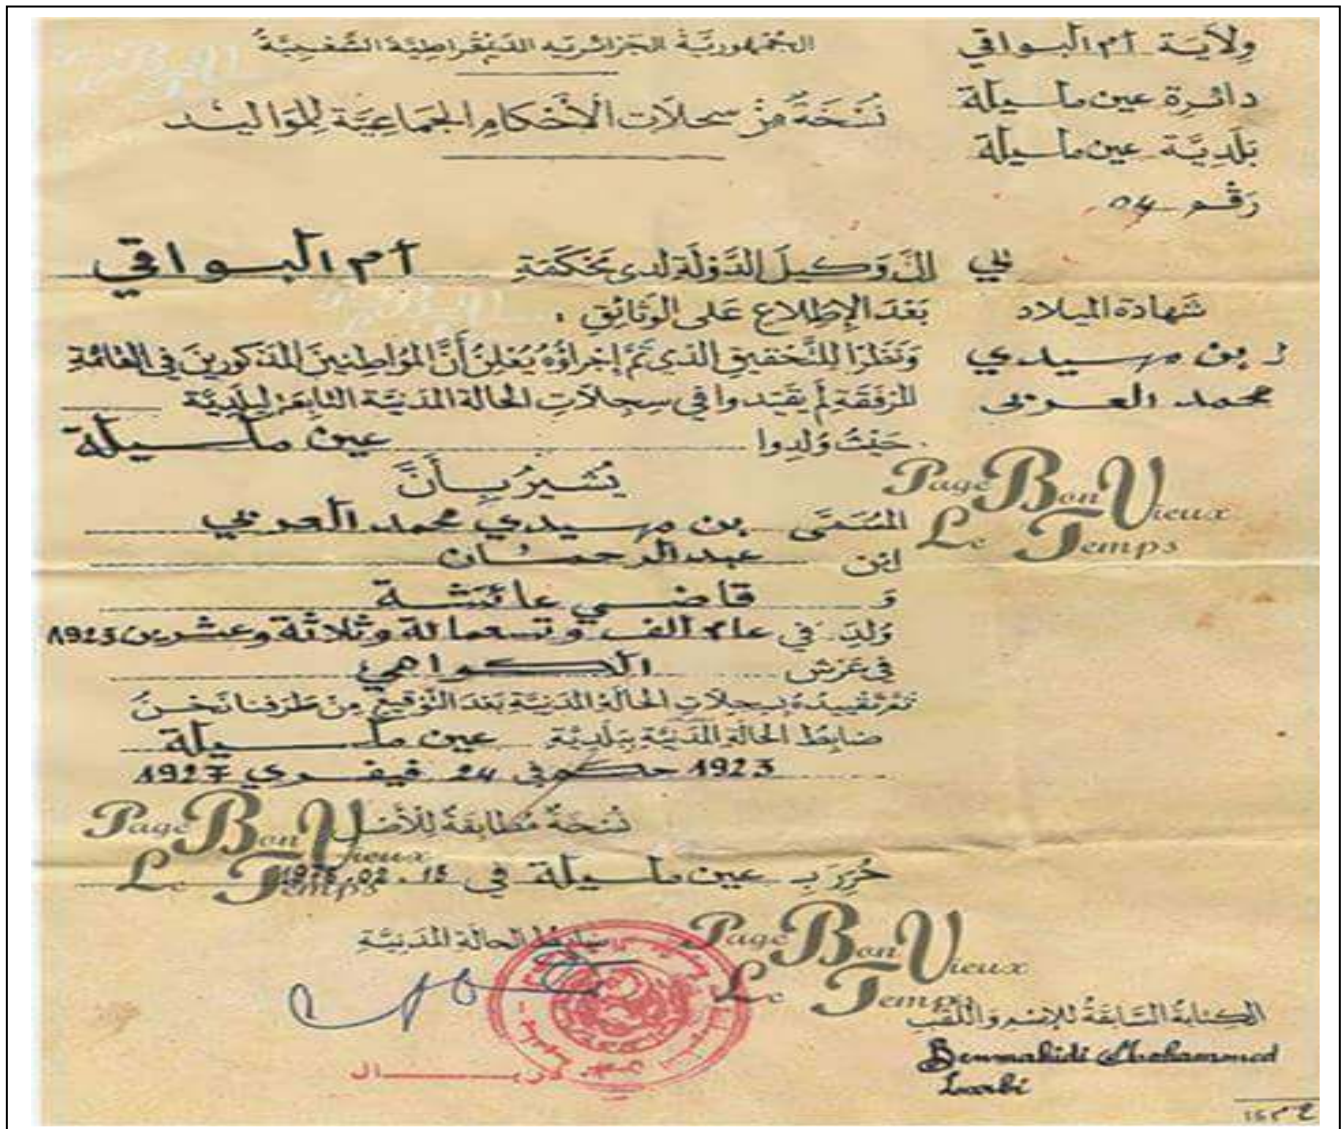 الجمهورية الجزائرية الديمقراطية الشعبية
ولاية أم البواقي
دائرة عين مليلة
بلدية عين مليلة
رقم 04
نسخة من سجلات الأحكام الجماعية للمواليد
شهادة الميلاد
لـ بن مهيدي
محمد العربي
إن وكيل الدولة لدى محكمة أم البواقي
بعد الإطلاع على الوثائق :
ونظرا للتحقيق الذي تم إجراؤه يعلن أن المواطنين المذكورين في القائمة
المرفقة لم يقيدوا في سجلات الحالة المدنية التابعة لبلدية
عين مليلة حيث ولدوا
يشير بأن
المسمى بن مهيدي محمد العربي
ابن عبد الرحمان
و قاضي عائشة
ولد في عام ألف وتسعمائة وثلاثة وعشرين 1923
في عرش الكواهي
تم تقييده بسجلات الحالة المدنية بعد التوقيع من طرفنا نحن
ضابط الحالة المدنية ببلدية عين مليلة
1923 حكم في 24 فيفري 1927
نسخة مطابقة للأصل
حرر بـ عين مليلة في 15.02.
ضابط الحالة المدنية
الكتابة السابقة للإسم واللقب
Benmahidi Mohammed
Larbi
Page Bon Vieux
Le Temps
Page Bon Vieux
Le Temps
Page Bon Vieux
Le Temps